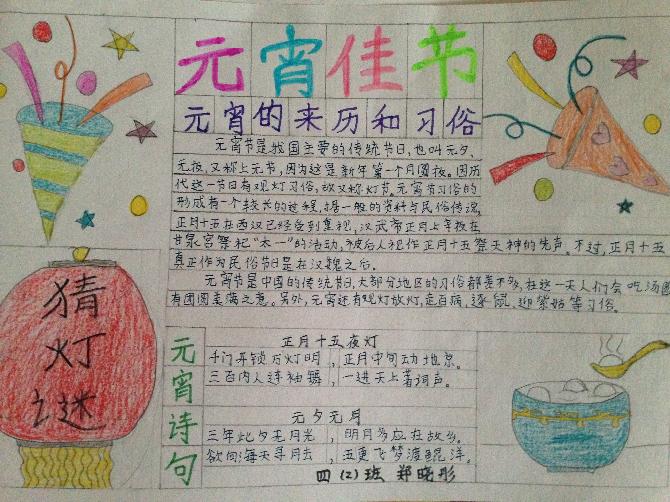 元宵佳节
元宵的来历和习俗
元宵节是我国主要的传统节日,也叫元夕、
元夜,又称上元节,因为这是新年第一个月圆夜。因历
代这一节日有观灯习俗,故又称灯节。元宵节习俗的
形成有一个较长的过程,据一般的资料与民俗传说,
正月十五在西汉已经受到重视,汉武帝正月上辛夜在
甘泉宫祭祀“太一”的活动,被后人视作正月十五祭天神的先声。不过,正月十五
真正作为民俗节日是在汉魏之后。
元宵节是中国的传统节日,大部分地区的习俗都差不多,在这一天人们会吃汤圆
有团圆美满之意。另外,元宵还有观灯放灯,走百病,逐鼠,迎紫姑等习俗。
猜
灯
谜
元宵诗句
正月十五夜灯
千门开锁万灯明,正月中旬动地京。
三百内人连袖舞,一进天上著词声。
元夕无月
三年此夕无月光,明月多应在故乡。
欲向海天寻月去,五更飞梦渡鲲洋。
四(2)班 郑晓彤